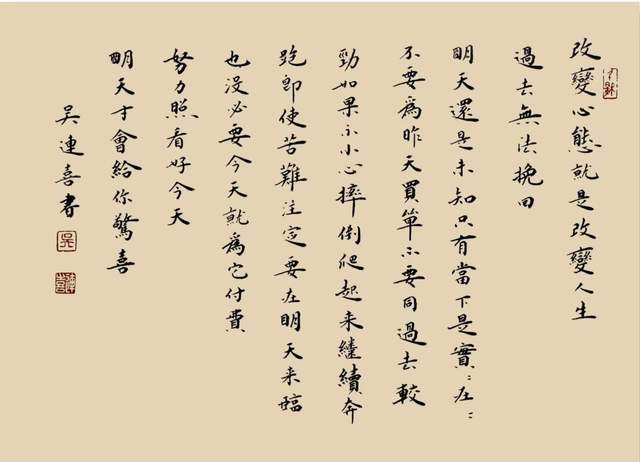 改變心態就是改變人生
過去無法挽回
明天還是未知只有當下是實:在:
不要為昨天買單不要同過去較
勁如果不小心摔倒爬起来繼續奔
跑即使苦難注定要在明天来臨
也没必要今天就為它付費
努力照看好今天
明天才會給你驚喜
吴連喜書
吴
連喜